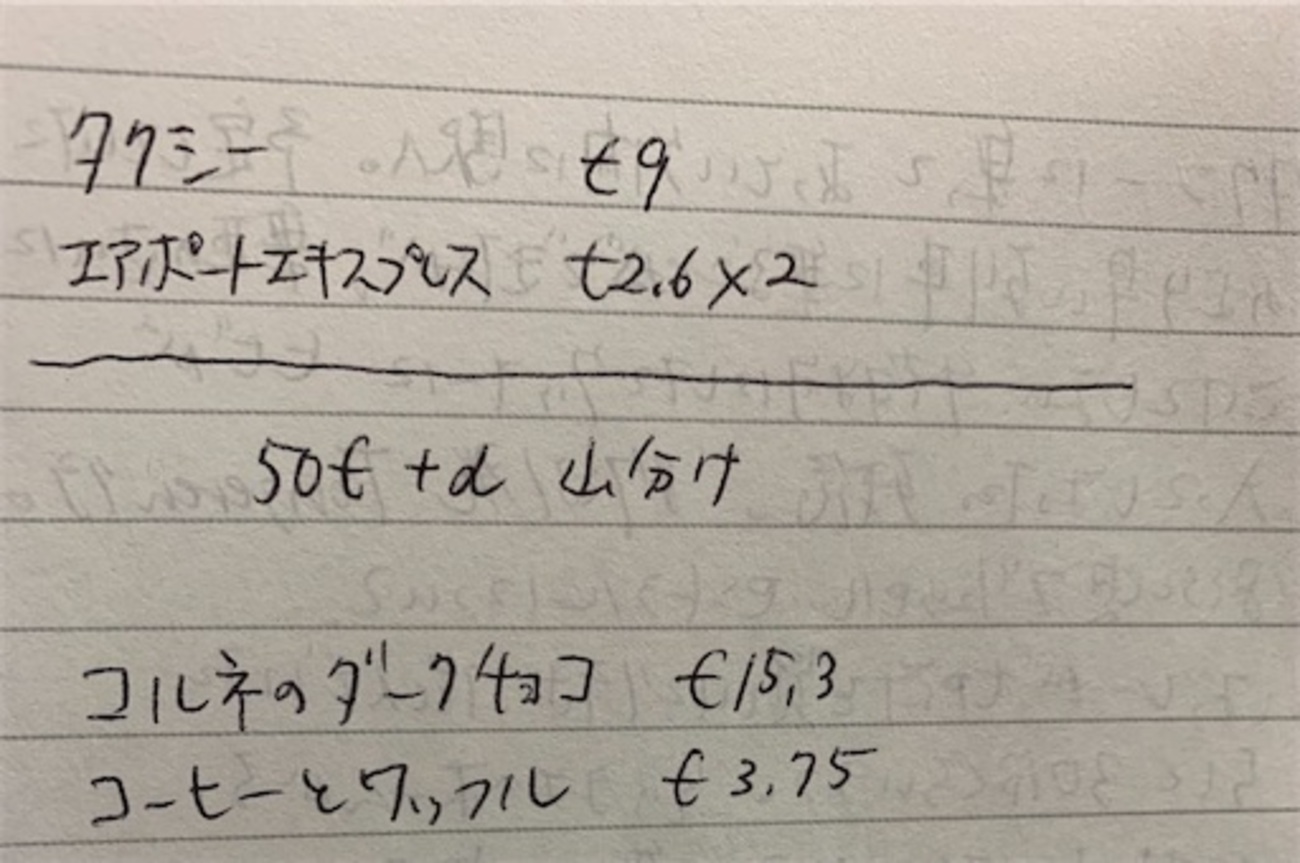 タクシー €9
エアポートエキスプレス €2.6×2
50€+α 山分け
コルネのダークチョコ €15,3
コーヒーとワッフル €3.75